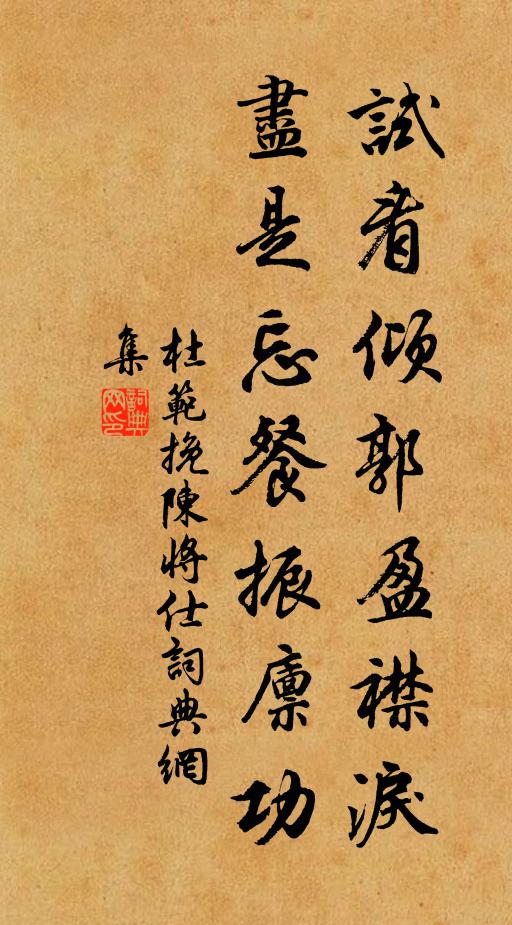 試看傾郭盈襟淚
盡是忘餐振廩功
杜範挽陳將仕詞典網
集
詞典
网印